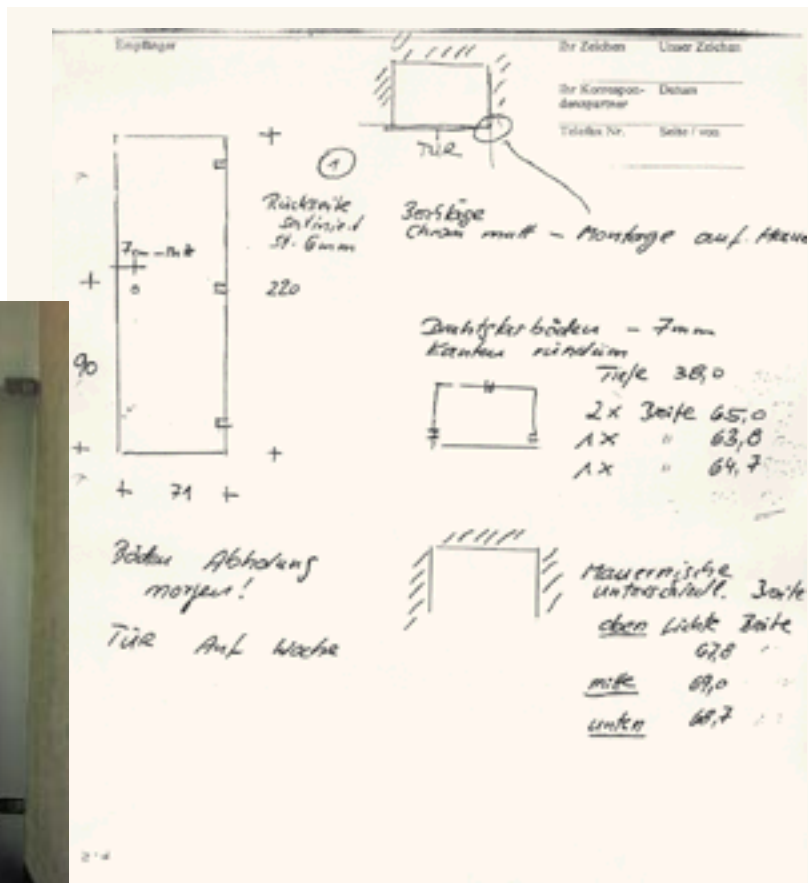 Empfänger
Ihr Zeichen Unser Zeichen
Ihr Korrespon- Datum
denzpartner
Telefax Nr. Seite / von
TÜR
1
Rückseite
satiniert
St. 6mm
7cm
220
90
71
Beschläge
Chrom matt - Montage auf Mauer
Drahtglasböden - 7mm
Kanten rundum
Tiefe 38,0
2x Breite 65,0
1x " 63,8
1x " 64,7
Böden Abholung
morgen!
TÜR Anf Woche
Mauernische
unterschiedl. Breite
oben Lichte Breite
67,8
mitte 69,0
unten 68,7